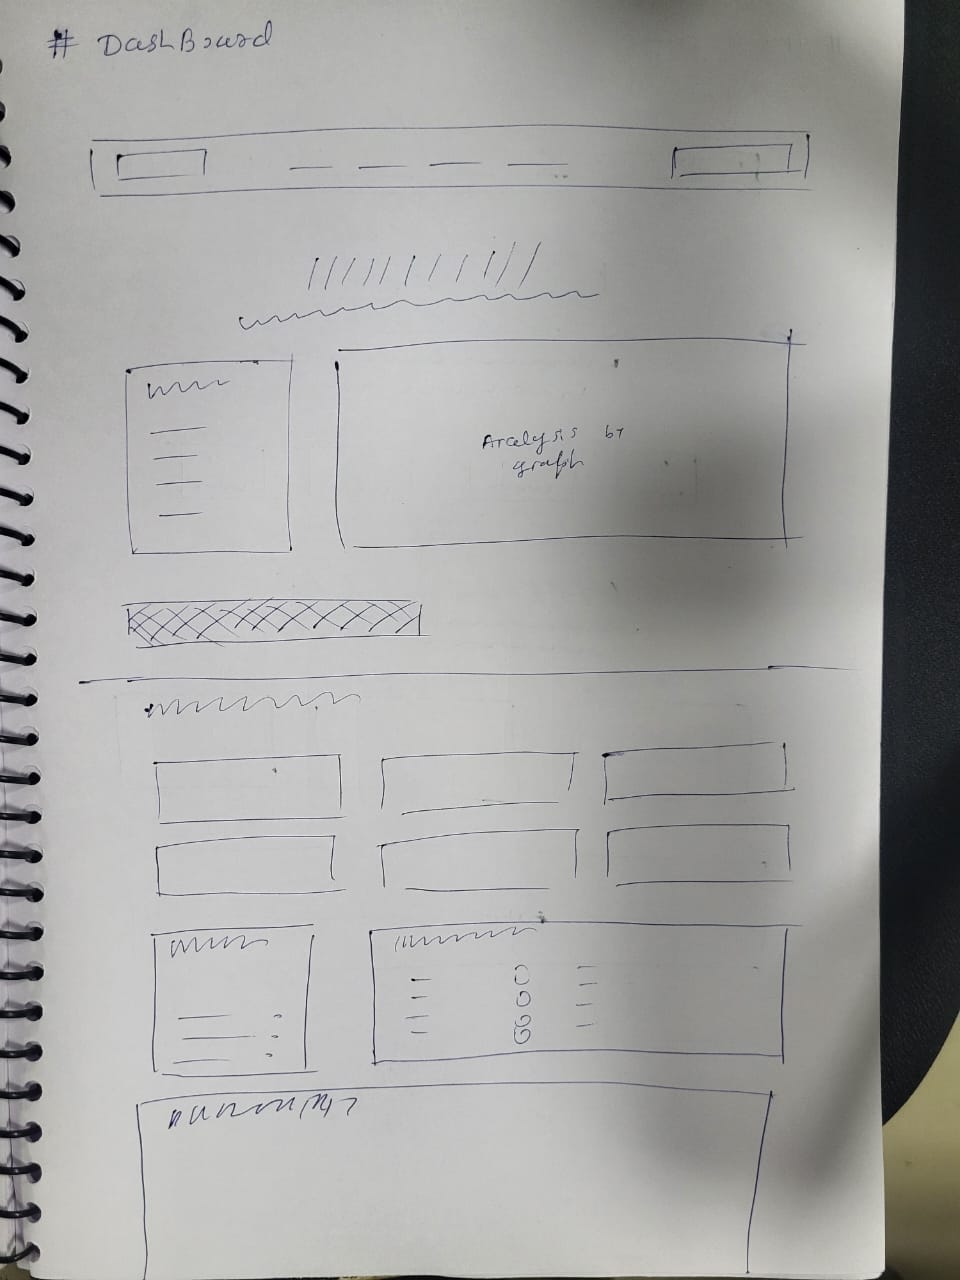 # DashBoard
Analysis by
graph